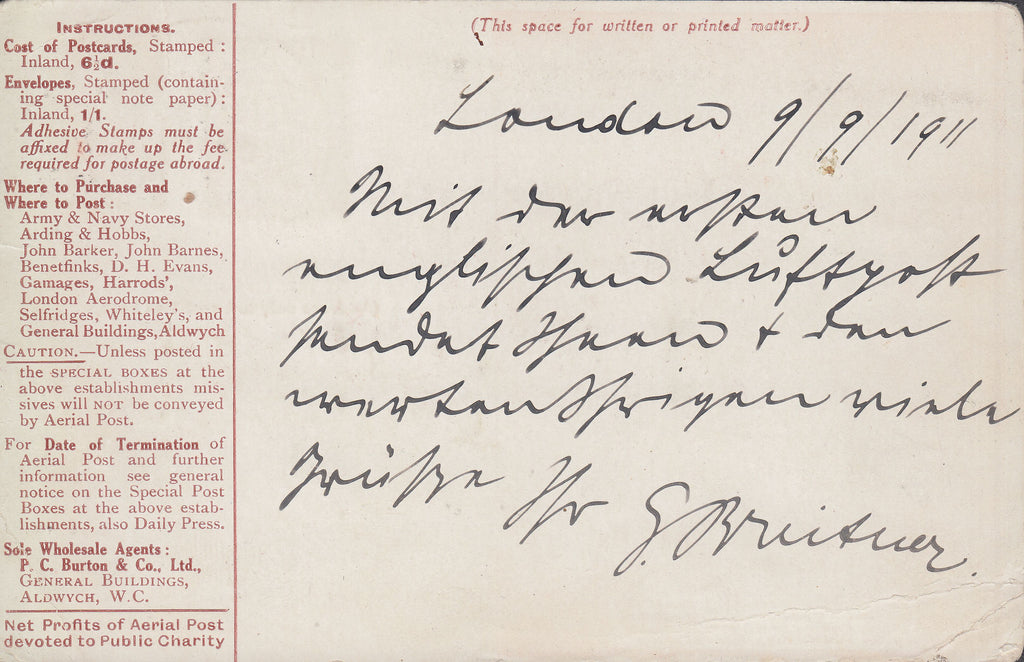 INSTRUCTIONS.
Cost of Postcards, Stamped :
Inland, 6½d.
Envelopes, Stamped (contain-
ing special note paper) :
Inland, 1/1.
Adhesive Stamps must be
affixed to make up the fee
required for postage abroad.
Where to Purchase and
Where to Post :
Army & Navy Stores,
Arding & Hobbs,
John Barker, John Barnes,
Benetfinks, D. H. Evans,
Gamages, Harrods',
London Aerodrome,
Selfridges, Whiteley's, and
General Buildings, Aldwych
CAUTION.—Unless posted in
the SPECIAL BOXES at the
above establishments mis-
sives will NOT be conveyed
by Aerial Post.
For Date of Termination of
Aerial Post and further
information see general
notice on the Special Post
Boxes at the above estab-
lishments, also Daily Press.
Sole Wholesale Agents :
P. C. Burton & Co., Ltd.,
GENERAL BUILDINGS,
ALDWYCH, W.C.
Net Profits of Aerial Post
devoted to Public Charity
(This space for written or printed matter.)
London 9/9/1911
Mit der ersten
englischen Luftpost
sendet Ihnen + den
werten Ihrigen viele
Grüsse Ihr G. Breitner.